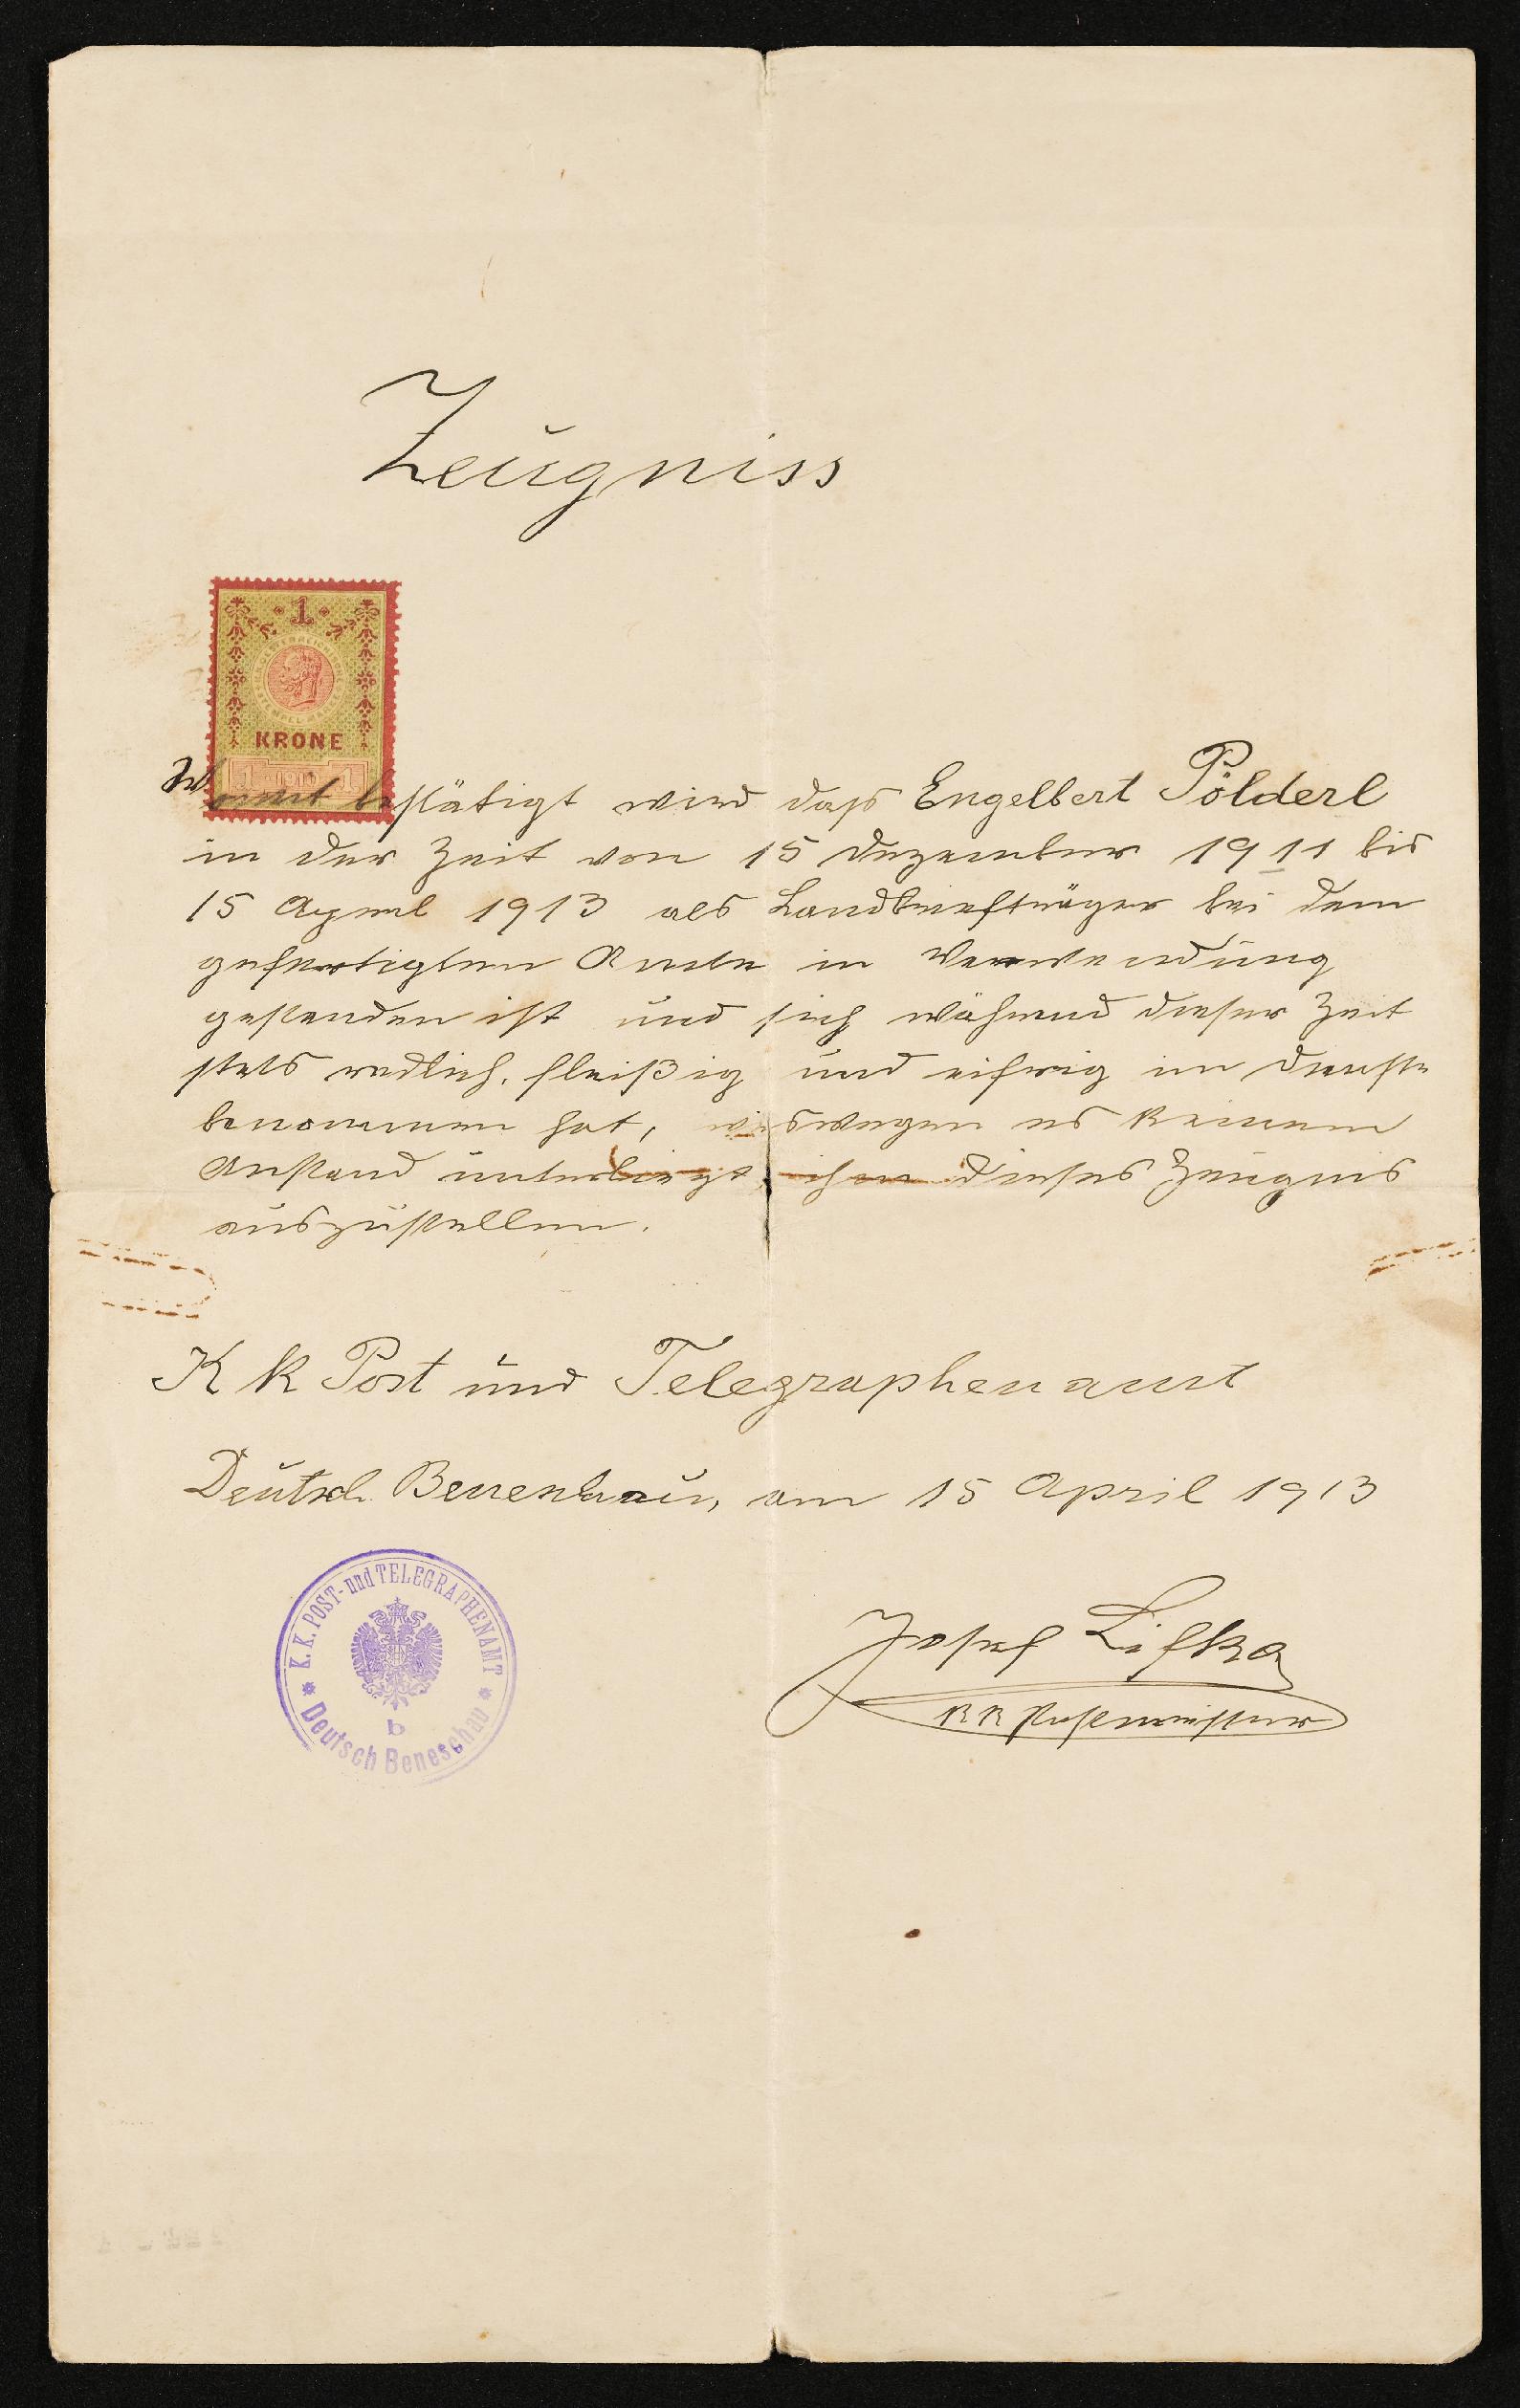 Zeugniss
1
KRONE
1 1911 1
Womit bestätigt wird daß Engelbert Pölderl
in der Zeit von 15 Dezember 1911 bis
15 April 1913 als Landbriefträger bei dem
gefertigten Amte in Verwendung
gestanden ist und sich während dieser Zeit
stets redlich, fleißig und eifrig im Dienste
benommen hat, weswegen es keinem
Anstand unterliegt, ihm dieses Zeugnis
auszustellen.
K k Post und Telegraphenamt
Deutsch Beneschau, am 15 April 1913
K. K. POST- und TELEGRAPHENAMT
b
Deutsch Beneschau
Josef Lifka
K K Postmeister